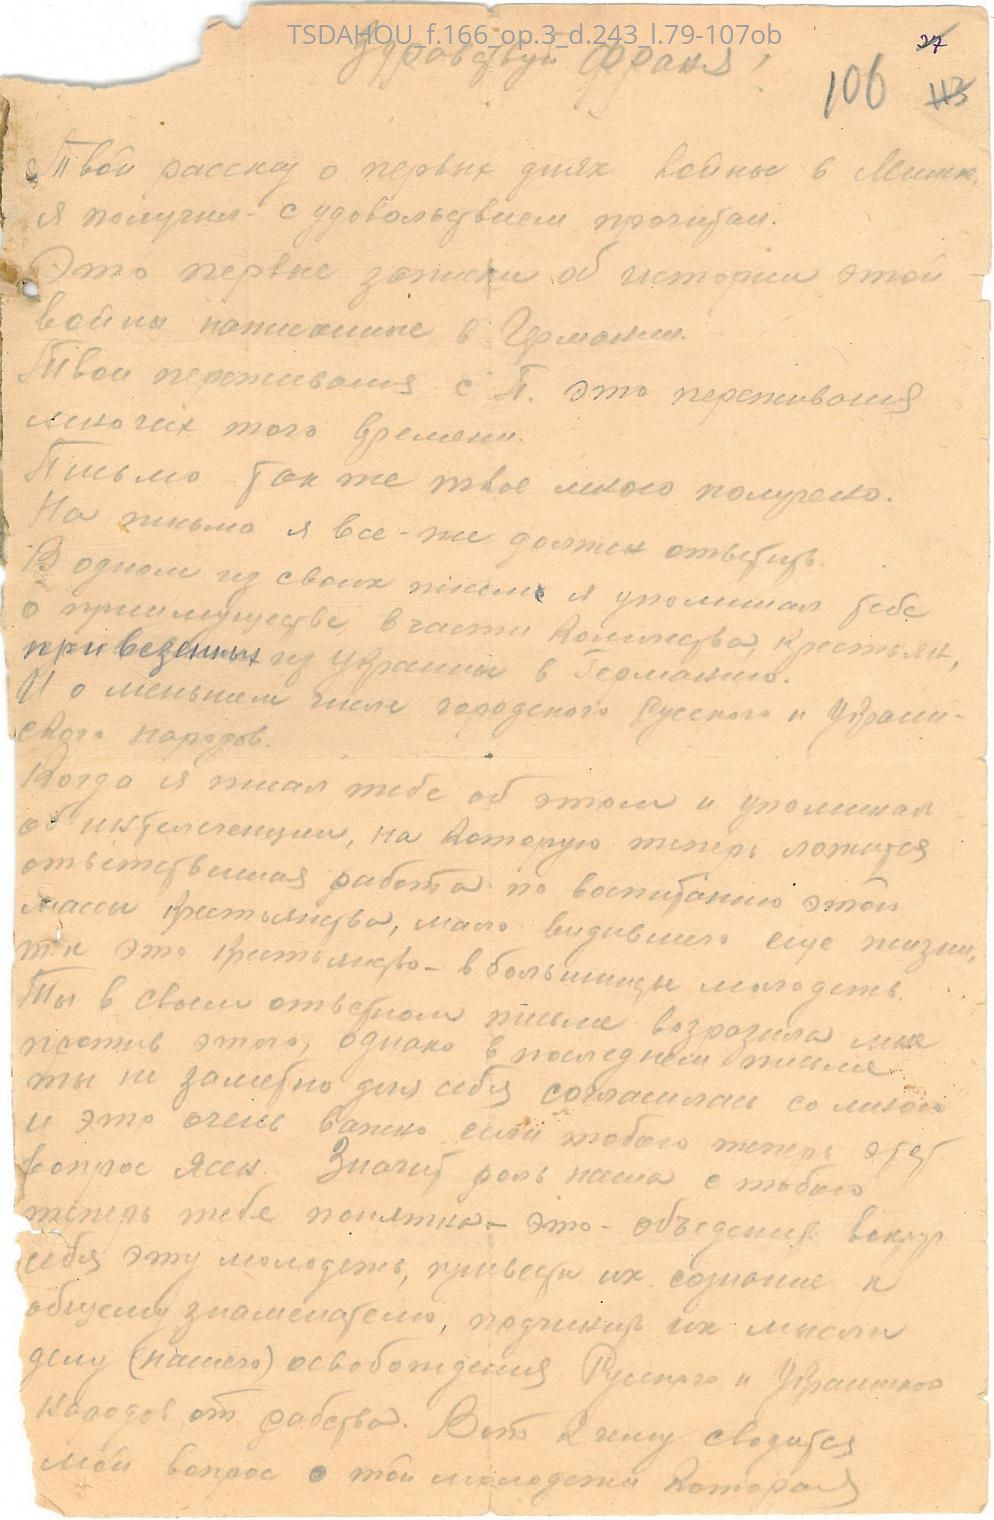 TSDAHOU_f.166_op.3_d.243_l.79-107ob
27
106 113
Здравствуй Франя!
Твой рассказ о первых днях войны в Минске,
я получил - с удовольствием прочитал.
Это первые записки об истории этой
войны написанные в Германии.
Твои переживания с П. это переживания
многих того времени.
Письмо так же твое мною получено.
На письмо я все-же должен ответить.
В одном из своих писем я упоминал тебе
о приимуществе, в части количества, крестьян,
привезенных из Украины в Германию.
И о меньшем числе городского Русского и Украин-
ского народов.
Когда я писал тебе об этом и упоминал
об интелегенции, на которую теперь ложится
ответственная работа по воспитанию этой
массы крестьянства, мало видившего еще жизни,
т.к это крестьянство - в большинстве молодежь.
Ты в своем ответном письме возразила мне
против этого, однако в последнем письме
ты не заметно для себя согласилась со мною
и это очень важно если тобою теперь этот
вопрос ясен. Значит роль наша с тобою
теперь тебе понятна - это - объеденить вокруг
себя эту молодежь, привести их сознание к
общему знаменателю, подчинить их мысли
делу (нашего) освобождения Русского и Украинского
народов от рабства. Вот к чему сводится
мой вопрос о той молодежи которая